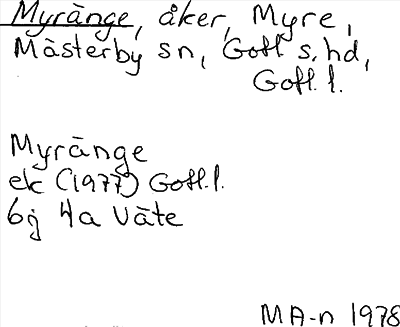 Myränge, åker, Myre,
Mästerby sn, Gotl s. hd,
Gotl. l.
Myränge
ek (1977) Gotl. l.
6j 4a Väte
MA-n 1978